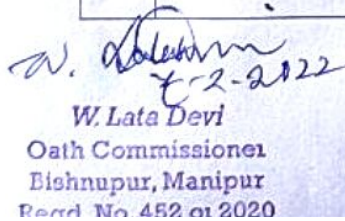 W.
7-2-2022
W. Lata Devi
Oath Commissioner
Bishnupur, Manipur
Regd. No. 452 of 2020